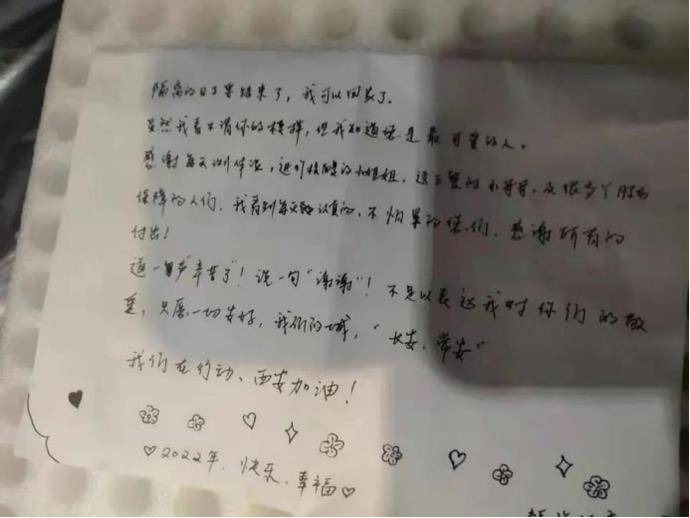 隔离的日子要结束了，我可以回家了。
虽然我看不清你的模样，但我知道您是最可爱的人。
感谢每天测体温，进行核酸的小姐姐，送三餐的小哥哥，及很多个
保障的人们，我看到每天认真的，不怕累的您们，感谢所有的
付出！
道一声"辛苦了"！说一句"谢谢"！不足以表达我对你们的敬
爱，只愿一切安好，我们的城，"长安，常安"
我们在行动、西安加油！
2022年，快乐，幸福